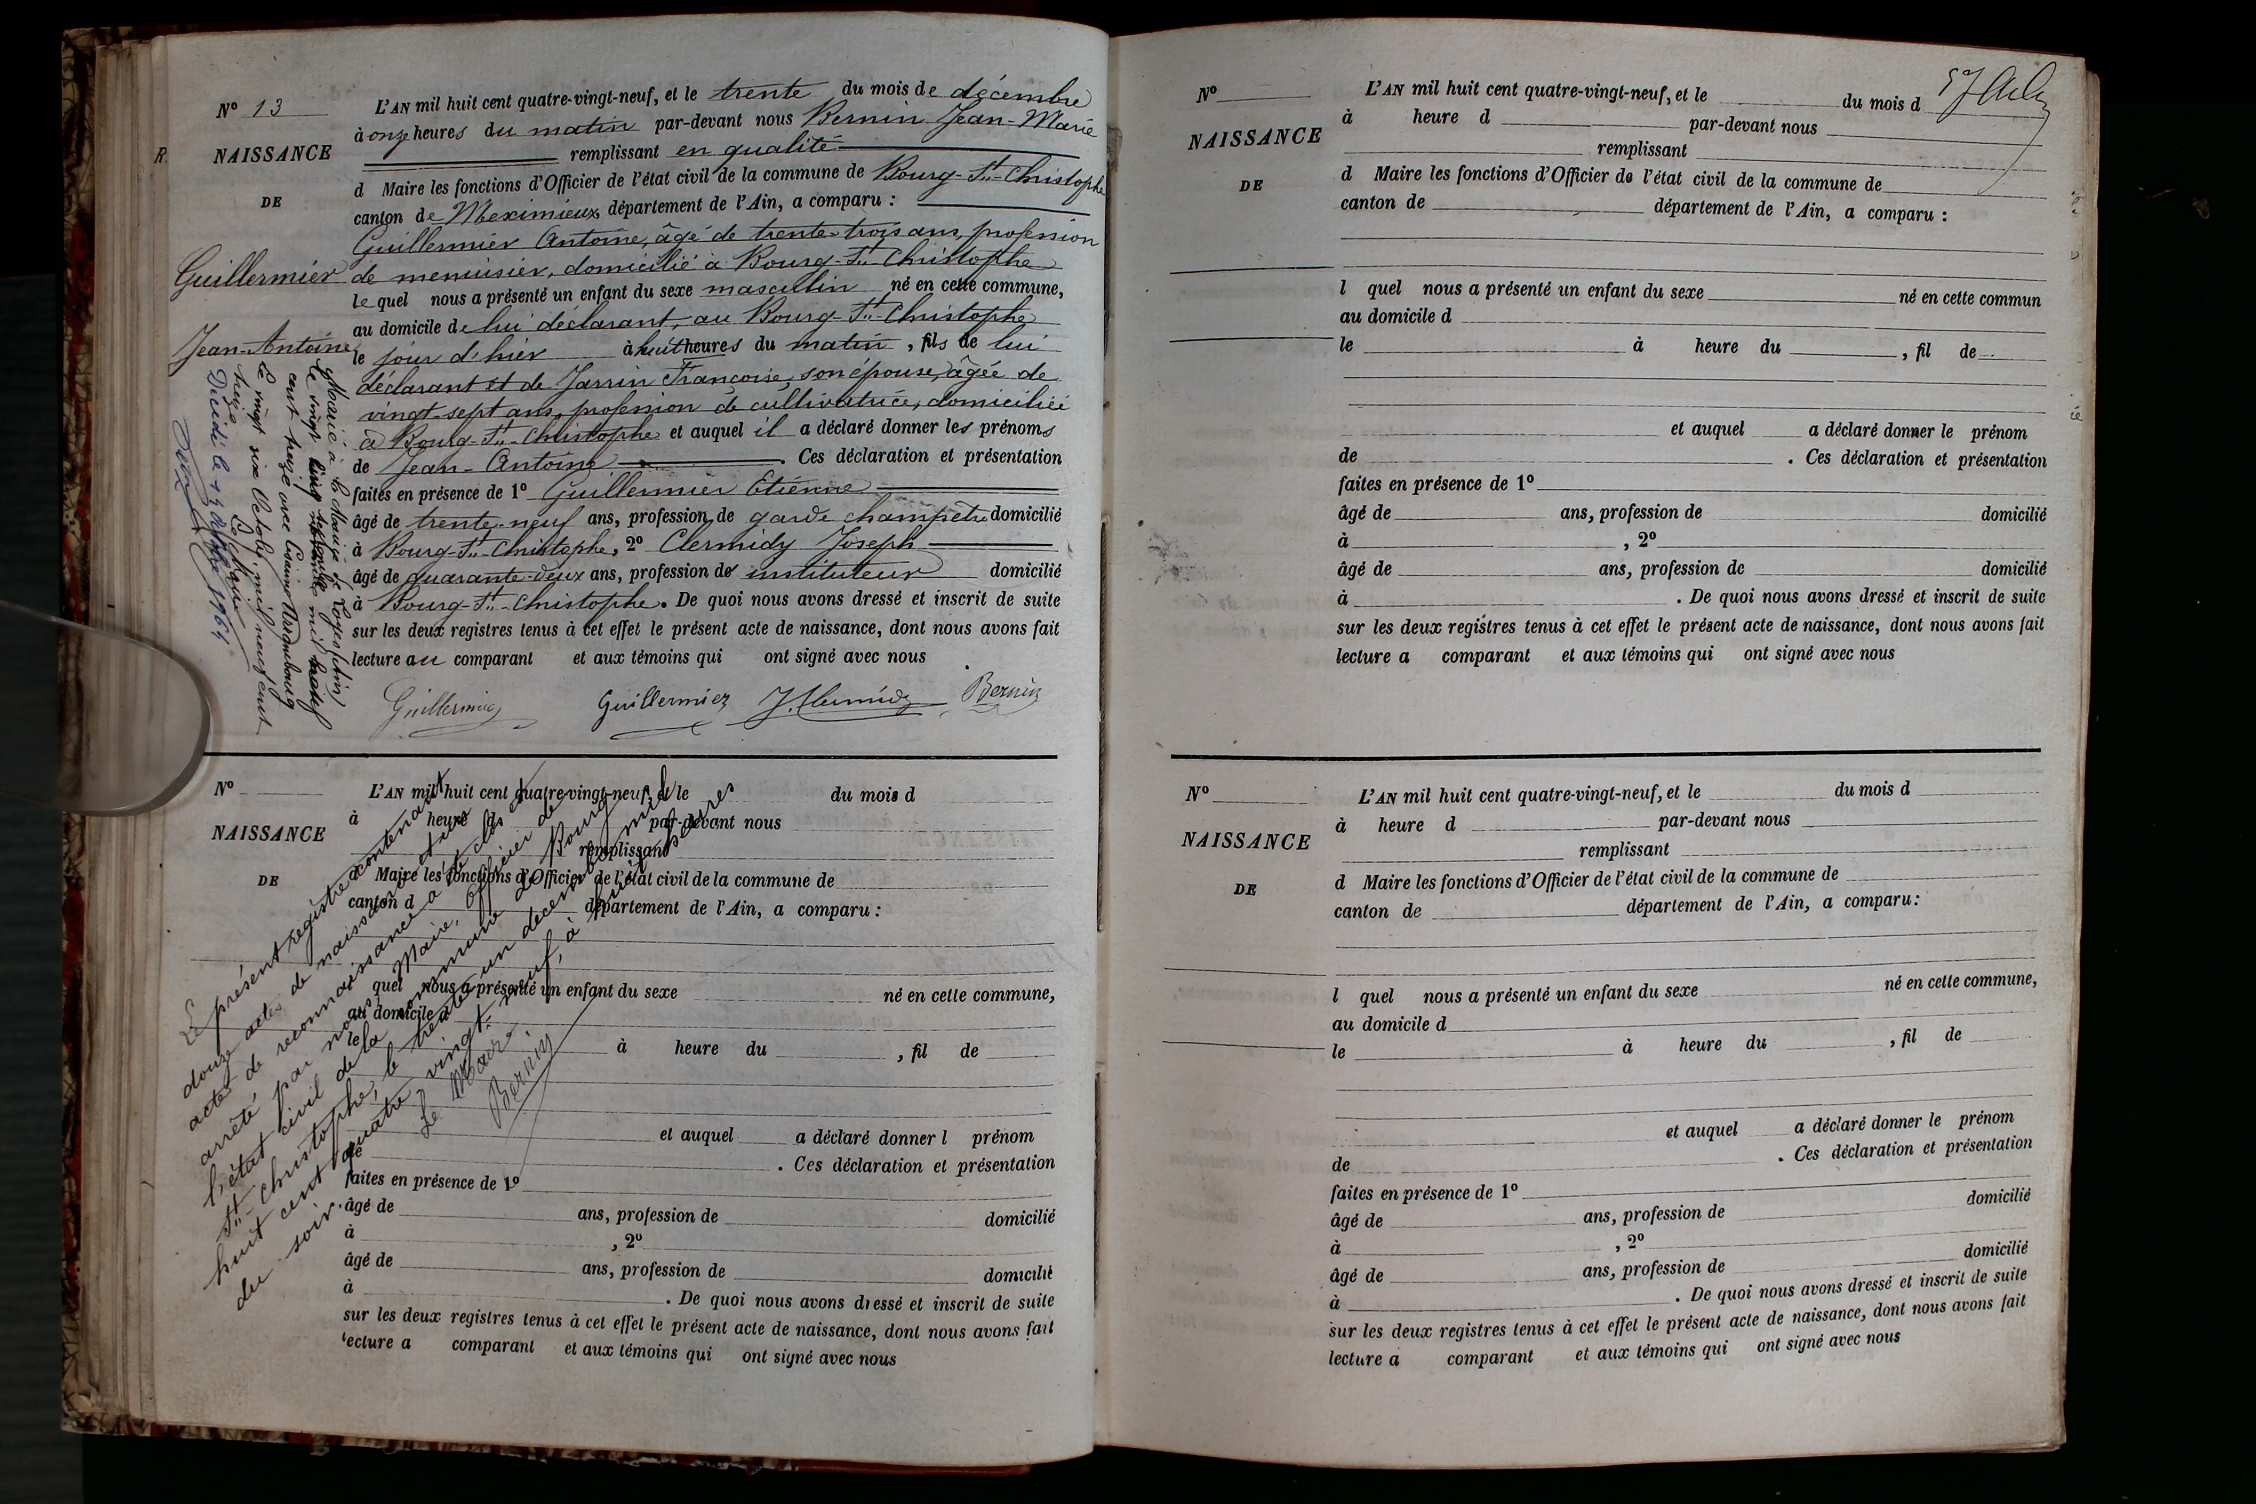 N° 13
NAISSANCE
DE
Guillermier
Jean-Antoine
R.
L'AN mil huit cent quatre-vingt-neuf, et le trente du mois de décembre
à onze heures du matin par-devant nous Bernin Jean-Marie
remplissant en qualité
d Maire les fonctions d'Officier de l'état civil de la commune de Bourg-St-Christophe
canton de Meximieux, département de l'Ain, a comparu :
Guillermier Antoine, âgé de trente-trois ans, profession
de menuisier, domicilié à Bourg-St-Christophe
le quel nous a présenté un enfant du sexe masculin né en cette commune,
au domicile de lui déclarant, au Bourg-St-Christophe
le jour d'hier à huit heures du matin, fils de lui
déclarant et de Jarrin Françoise, son épouse, âgée de
vingt-sept ans, profession de cultivatrice, domiciliée
à Bourg-St-Christophe et auquel il a déclaré donner les prénoms
de Jean-Antoine. Ces déclaration et présentation
faites en présence de 1° Guillermier Etienne
âgé de trente-neuf ans, profession de garde champêtre domicilié
à Bourg-St-Christophe, 2° Clermidy Joseph
âgé de quarante-deux ans, profession de instituteur domicilié
à Bourg-St-Christophe. De quoi nous avons dressé et inscrit de suite
sur les deux registres tenus à cet effet le présent acte de naissance, dont nous avons fait
lecture au comparant et aux témoins qui ont signé avec nous
Guillermier Guillermier J. Clermidy Bernin
Marié à
le vingt
cent treize avec
Le vingt six Octobre mil neuf cent
treize
Le Maire
Décidé le 1964
N°
NAISSANCE
DE
L'AN mil huit cent quatre-vingt-neuf, et le du mois d
à heure d par-devant nous
remplissant
d Maire les fonctions d'Officier de l'état civil de la commune de
canton d département de l'Ain, a comparu :
quel nous a présenté un enfant du sexe né en cette commune,
au domicile d
le à heure du , fil de
et auquel a déclaré donner l prénom
de . Ces déclaration et présentation
faites en présence de 1°
âgé de ans, profession de domicilié
à , 2°
âgé de ans, profession de domicilié
à . De quoi nous avons dressé et inscrit de suite
sur les deux registres tenus à cet effet le présent acte de naissance, dont nous avons fait
lecture a comparant et aux témoins qui ont signé avec nous
Le présent registre contenant
douze actes de naissance et un
actes de reconnaissance a été clos et
arrêté par nous, Maire, Officier de
l'état civil de la commune de Bourg
St-Christophe, le trente un décembre mil
huit cent quatre vingt-neuf, à huit heures
du soir.
Le Maire
Bernin
N°
NAISSANCE
DE
L'AN mil huit cent quatre-vingt-neuf, et le du mois d
à heure d par-devant nous
remplissant
d Maire les fonctions d'Officier de l'état civil de la commune de
canton de département de l'Ain, a comparu :
l quel nous a présenté un enfant du sexe né en cette commun
au domicile d
le à heure du , fil de
et auquel a déclaré donner le prénom
de . Ces déclaration et présentation
faites en présence de 1°
âgé de ans, profession de domicilié
à , 2°
âgé de ans, profession de domicilié
à . De quoi nous avons dressé et inscrit de suite
sur les deux registres tenus à cet effet le présent acte de naissance, dont nous avons fait
lecture a comparant et aux témoins qui ont signé avec nous
N°
NAISSANCE
DE
L'AN mil huit cent quatre-vingt-neuf, et le du mois d
à heure d par-devant nous
remplissant
d Maire les fonctions d'Officier de l'état civil de la commune de
canton de département de l'Ain, a comparu :
l quel nous a présenté un enfant du sexe né en cette commune,
au domicile d
le à heure du , fil de
et auquel a déclaré donner le prénom
de . Ces déclaration et présentation
faites en présence de 1°
âgé de ans, profession de domicilié
à , 2°
âgé de ans, profession de domicilié
à . De quoi nous avons dressé et inscrit de suite
sur les deux registres tenus à cet effet le présent acte de naissance, dont nous avons fait
lecture a comparant et aux témoins qui ont signé avec nous